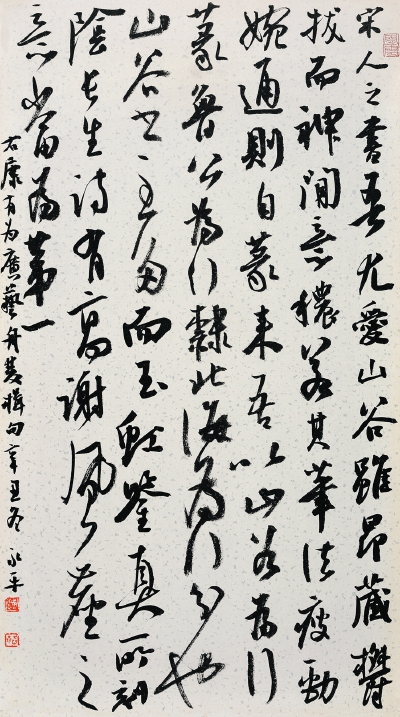 宋人之書吾尤愛山谷雖昂藏欝
拔而神閒意穠若其筆法瘦勁
婉通則自篆来吾以山谷為行
篆魯公為行隸北海為行分也
山谷書主多而玉虹鑒真所刻
陰長生詩有高謝風塵之
意當為第一
右康有為廣藝舟雙楫句辛丑冬永平